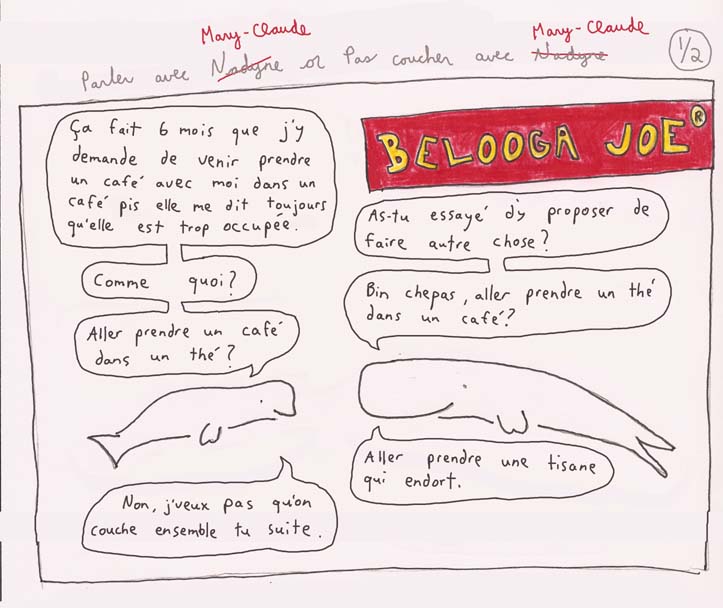 Mary-Claude Mary-Claude
Parler avec Nadyne or Pas coucher avec Nadyne
1/2
BELOOGA JOE®
Ça fait 6 mois que j'y
demande de venir prendre
un café avec moi dans un
café pis elle me dit toujours
qu'elle est trop occupée.
As-tu essayé d'y proposer de
faire autre chose?
Comme quoi?
Bin chepas, aller prendre un thé
dans un café?
Aller prendre un café
dans un thé?
Aller prendre une tisane
qui endort.
Non, j'veux pas qu'on
couche ensemble tu suite.